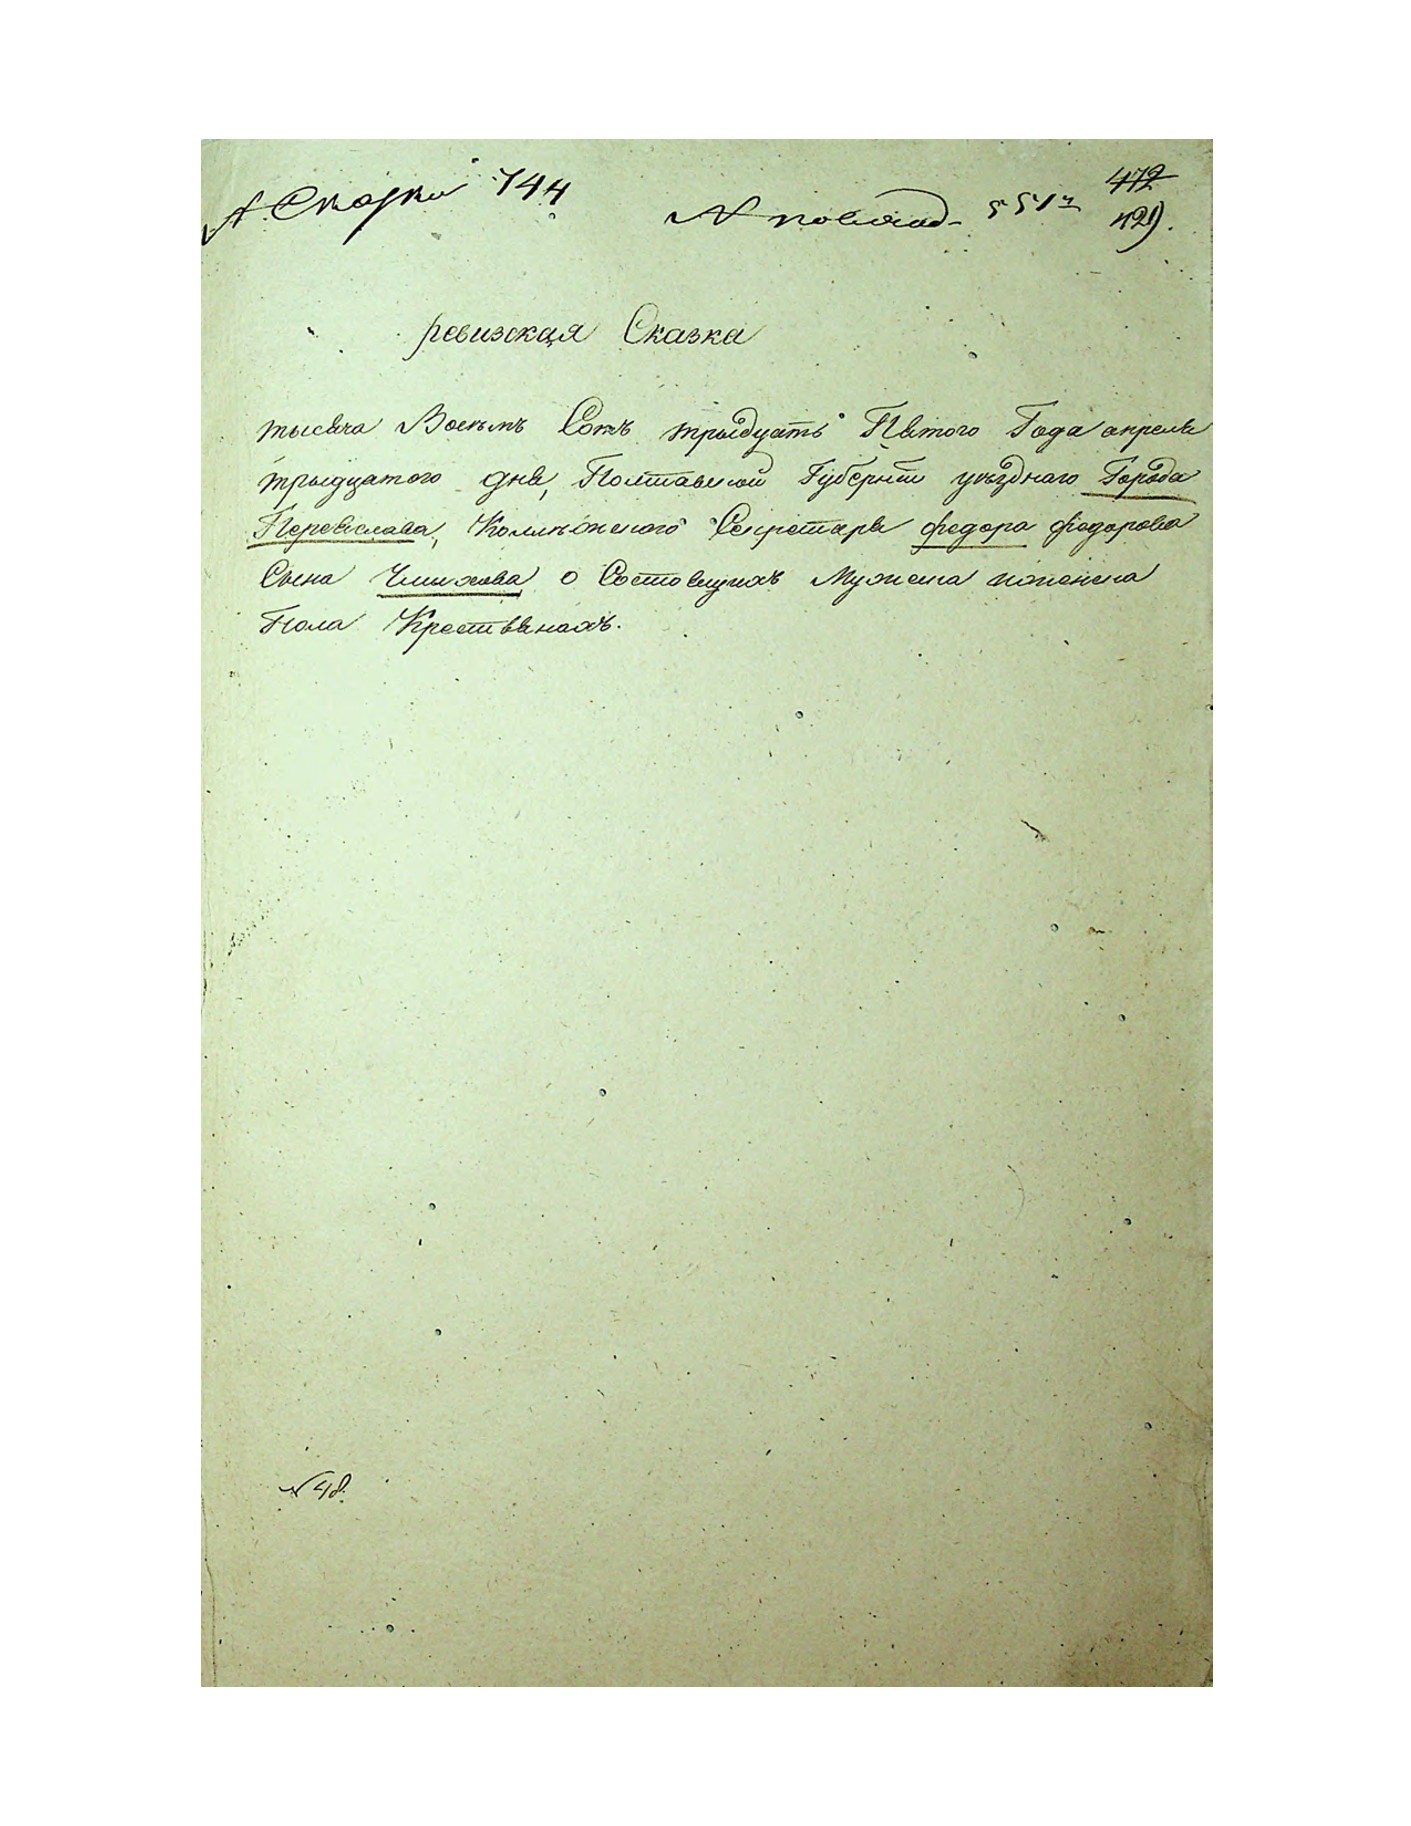 № Сказки 744
№ 551 472
421.
ревизская Сказка
тысяча Восемъ Сотъ тридцать Пятого Года апреля
тридцатого дня, Полтавской Губернии уезднаго Города
Переяслава, Коллежского Секретаря федора федорова
Сына Чинхова о Состоящихъ Мужеска иженска
Пола Крестьянахъ.
№ 48.